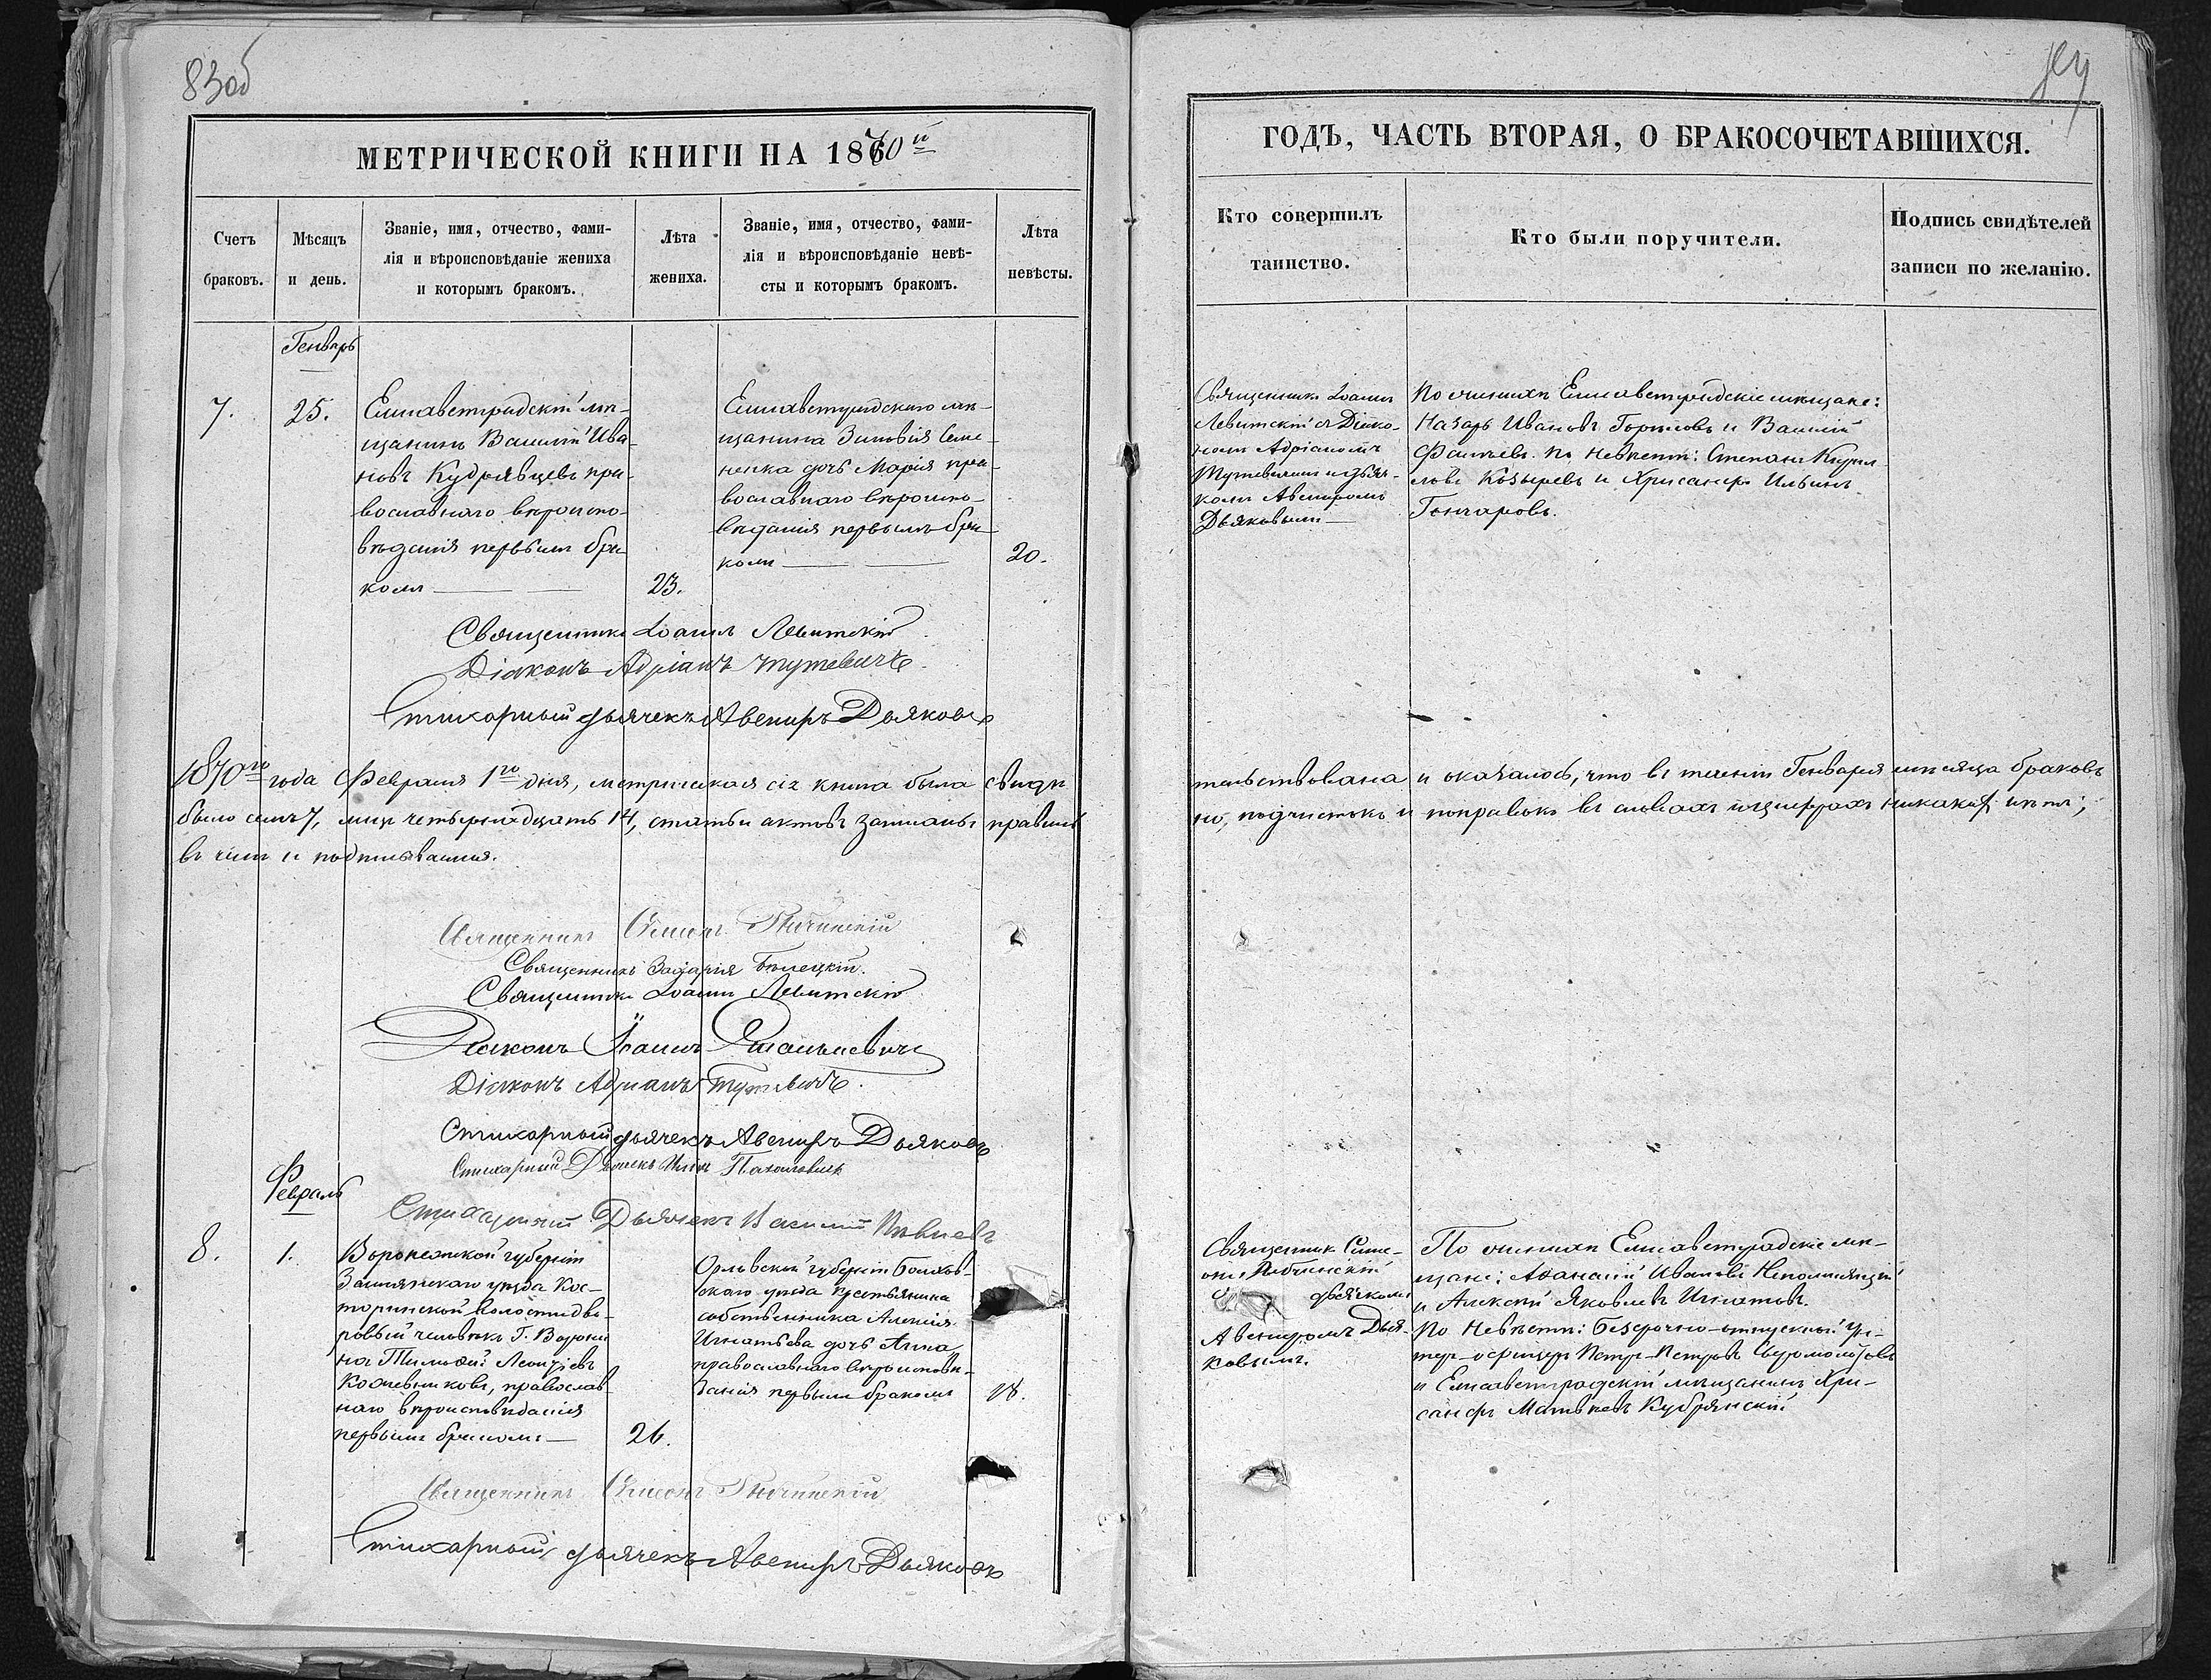 83об
МЕТРИЧЕСКОЙ КНИГИ НА 1870й
Счетъ браковъ.
Мѣсяцъ и день.
Званіе, имя, отчество, фами-
лія и вѣроисповѣданіе жениха
и которымъ бракомъ.
Лѣта жениха.
Званіе, имя, отчество, фами-
лія и вѣроисповѣданіе невѣ-
сты и которымъ бракомъ.
Лѣта невѣсты.
Генварь
7.
25.
Елисаветградскій мѣ-
щанинъ Василій Ива-
новъ Кудрявцевъ пра-
вославнаго вѣроиспо-
вѣданія первымъ бра-
комъ
23.
Елисаветградскаго мѣ-
щанина Зиновія Семе-
ненка дочь Марія пра-
вославнаго вѣроиспо-
вѣданія первымъ бра-
комъ
20.
Священникъ Іоаннъ Левитскій
Діаконъ Адріанъ Тутевичъ.
Стихарный дьячекъ Авениръ Дьяковъ
1870го года Февраля 1го дня, метрическая сія книга была свидѣ
было семь 7, лицъ четырнадцать 14, статьи актовъ записаны правиль
въ чемъ и подписываемся.
Священникъ Симеонъ
Священникъ Захарія Бѣлецкій.
Священникъ Іоаннъ Левитскій
Діаконъ Іоаннъ
Діаконъ Адріанъ Тутевичъ.
Стихарный дьячекъ Авениръ Дьяковъ
Стихарный Дьячекъ
Стихарный Дьячекъ Василій
Февраль
8.
1.
Воронежской губерніи
Землянскаго уѣзда Кос-
торнской волости дво-
ровый человѣкъ Г. Ворони
на Тимофей Леонтіевъ
Кожевниковъ, православ-
наго вѣроисповѣданія
первымъ бракомъ
26.
Орловской губерніи Болхов-
скаго уѣзда крестьянина
собственника Алексія
Игнатьева дочь Анна
православнаго вѣроисповѣ-
данія первымъ бракомъ
18.
Священникъ Симеонъ
Стихарный дьячекъ Авениръ Дьяковъ
ГОДЪ, ЧАСТЬ ВТОРАЯ, О БРАКОСОЧЕТАВШИХСЯ.
Кто совершилъ
таинство.
Кто были поручители.
Подпись свидѣтелей
записи по желанію.
Священникъ Іоаннъ
Левитскій съ Діако-
номъ Адріаномъ
Тутевичемъ и дьяч-
комъ Авениромъ
Дьяковымъ
По женихѣ Елисаветградскіе мѣщане:
Назаръ Ивановъ Горшковъ и Василій
По невѣстѣ: Степанъ Кирил-
ловъ Козыревъ и Хрисанфъ Ильинъ
Гончаровъ.
тельствована и оказалось, что въ теченіи Генваря мѣсяца браковъ
но, подчистокъ и поправокъ въ словахъ и цифрахъ никакихъ нѣтъ;
Священникъ Симе-
онъ
съ дьячкомъ
Авениромъ Дья-
ковымъ.
По женихѣ Елисаветградскіе мѣ-
щане: Аѳанасій Ивановъ Непомнящій
и Алексѣй Яковлевъ Игнатовъ.
По Невѣстѣ: Безсрочно-отпускный ун-
теръ-офицеръ Петръ Петровъ
и Елисаветградскій мѣщанинъ Хри-
санфъ Матвѣевъ Кубрянскій